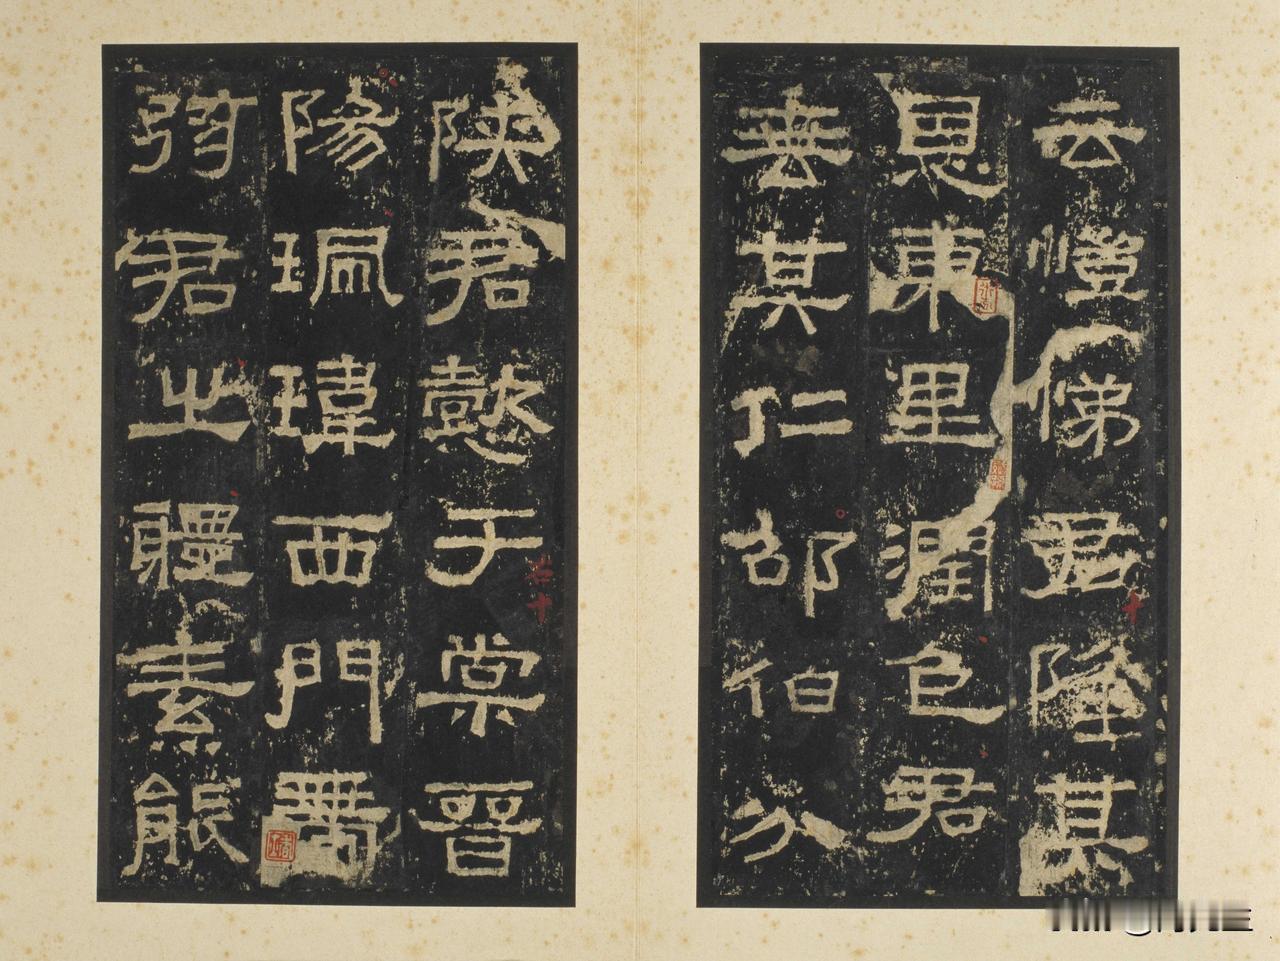 云愷悌君隆其
恩東里潤色君
垂其仁邵伯分
陝君懿于棠晉
陽珮瑋西門帶
弦君之體素能